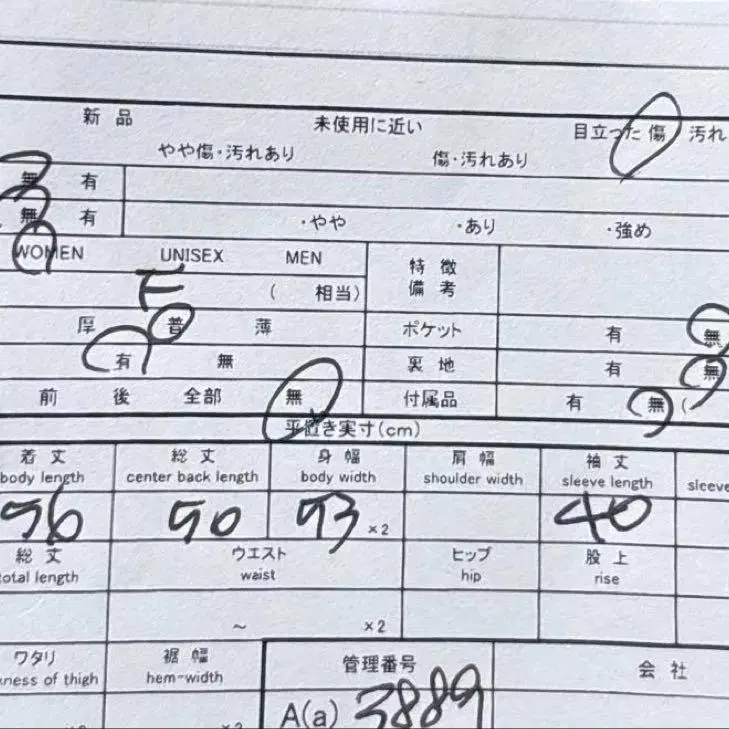 新品 未使用に近い 目立った傷 汚れ
やや傷・汚れあり 傷・汚れあり
無 有
無 有 ・やや ・あり ・強め
WOMEN UNISEX MEN 特徴
F ( 相当) 備考
厚 普 薄 ポケット 有 無
有 無 裏地 有 無
前 後 全部 無 付属品 有 無 (
平置き実寸(cm)
着丈 総丈 身幅 肩幅 袖丈
body length center back length body width shoulder width sleeve length sleeve
56 50 53 ×2 40
総丈 ウエスト ヒップ 股上
total length waist hip rise
~ ×2
ワタリ 裾幅 管理番号 会社
ness of thigh hem-width
A(a) 3889